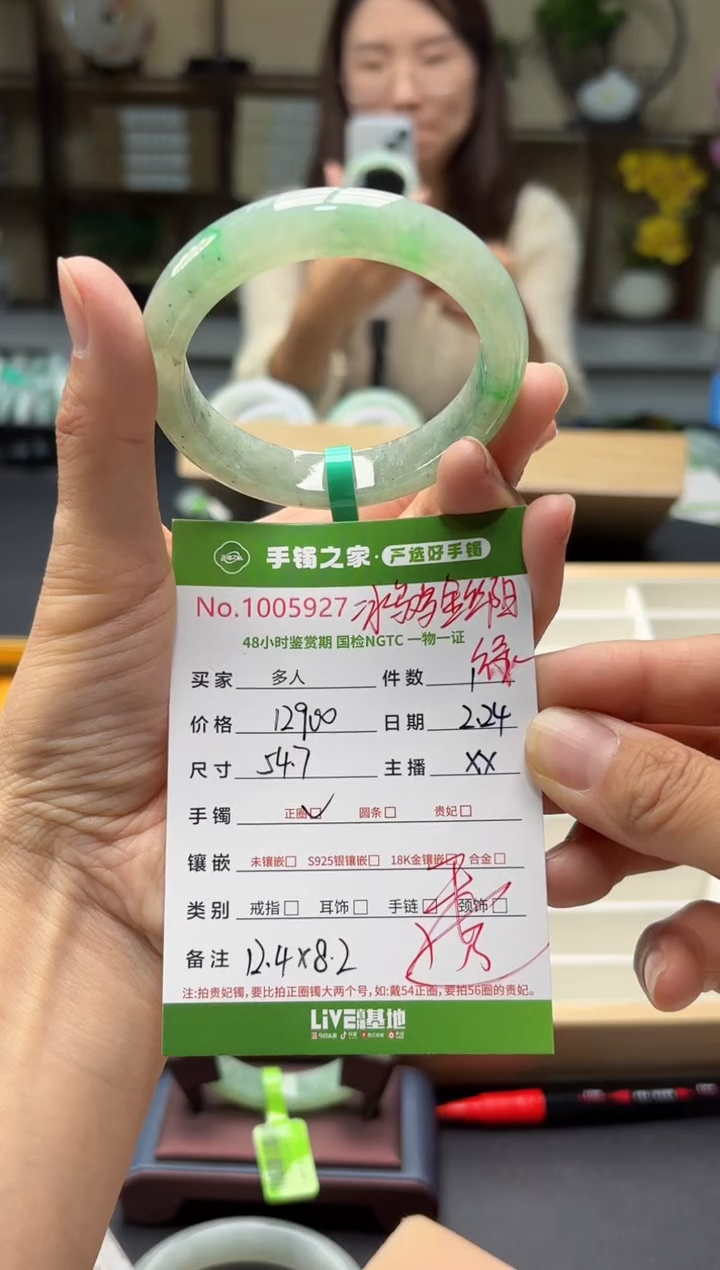 手镯之家·严选好手镯
No.1005927 冰乌鸡金丝阳绿
48小时鉴赏期 国检NGTC 一物一证
买家 多人 件数 1
价格 12900 日期 2.24
尺寸 54.7 主播 XX
手镯 正圈☑ 圆条□ 贵妃□
镶嵌 未镶嵌□ S925银镶嵌□ 18K金镶嵌□ 合金□
类别 戒指□ 耳饰□ 手链□ 颈饰□
备注 12.4×8.2
注:拍贵妃镯,要比拍正圈镯大两个号,如:戴54正圈,要拍56圈的贵妃。
LiVE直播基地